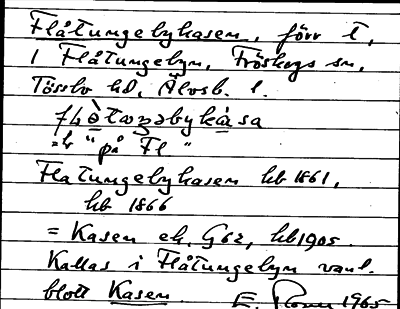 Flåtungebykasen, förr t.
i Flåtungebyn, Fröskogs sn,
Tössbo hd, Älvsb. l.
"på Fl "
Flatungebykasen hb 1861,
hb 1866
= Kasen ek. G62, hb 1905.
Kallas i Flåtungebyn vanl.
blott Kasen. E. 1965